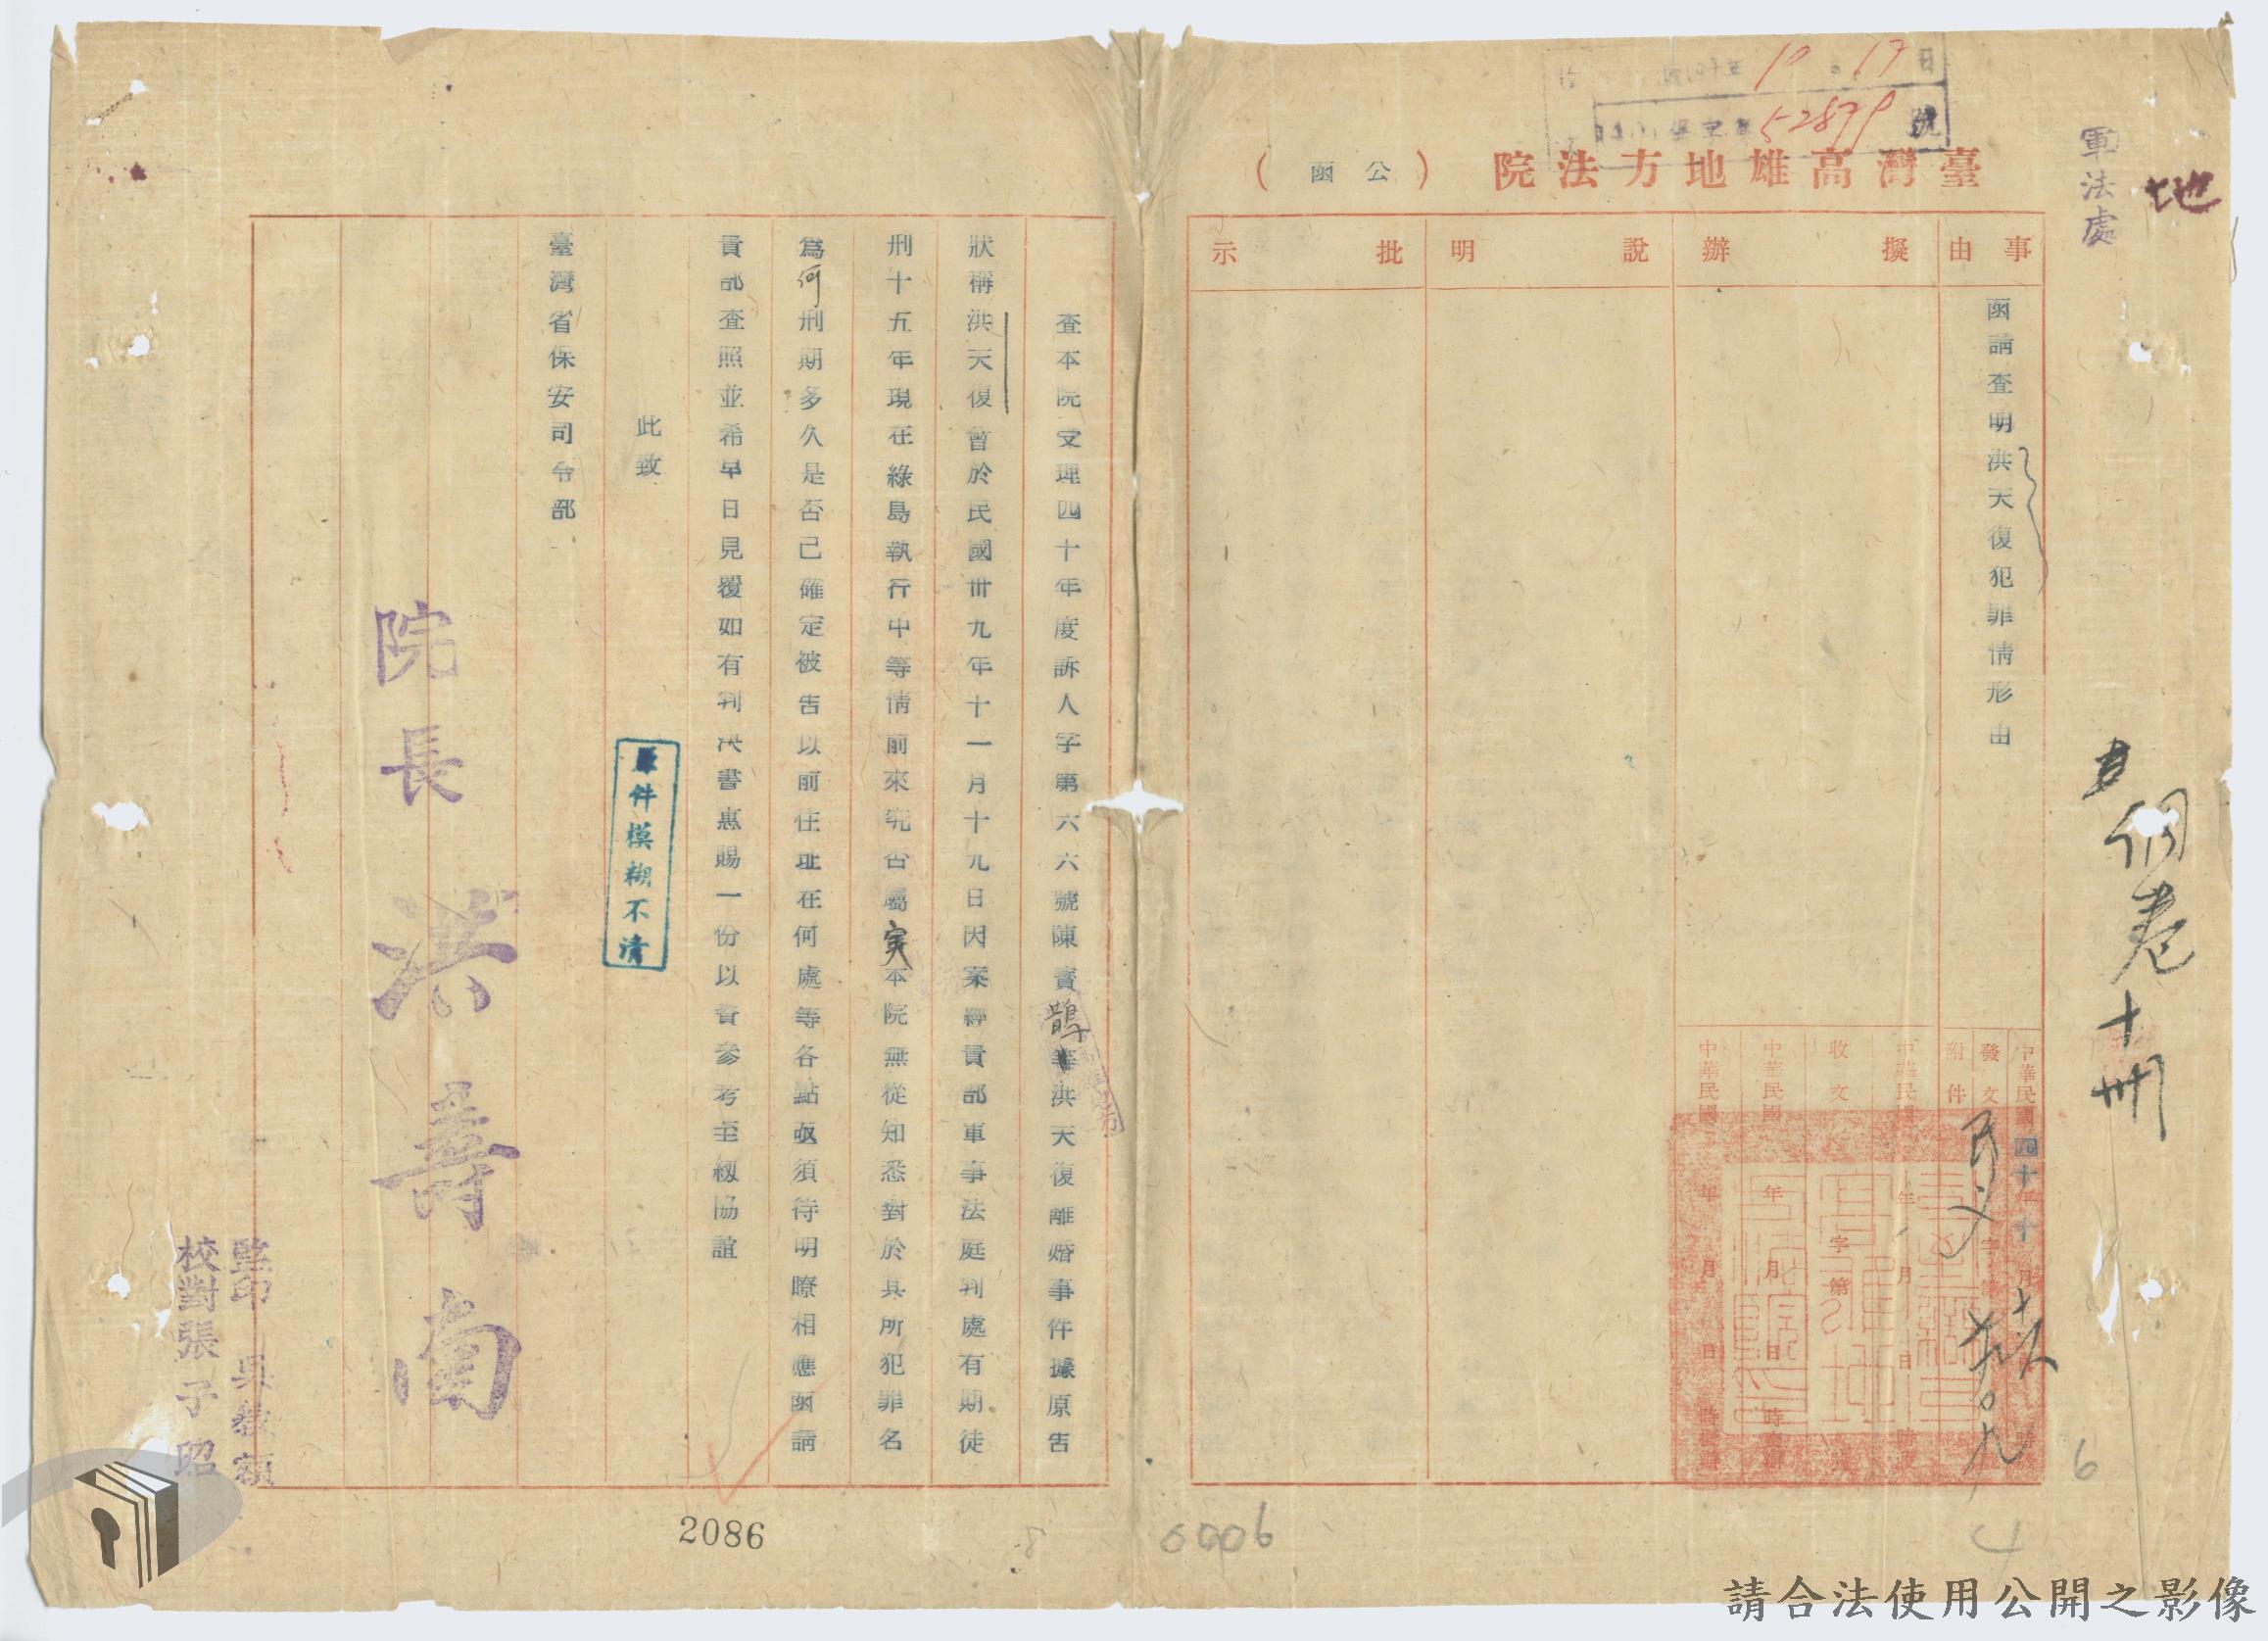 軍法處
地
10 17日
52879號
臺灣高雄地方法院(公函)
事由
擬辦
說明
批示
函請查明洪天復犯罪情形由
中華民國四十年十月
發文 字第
附件
中華民國 年 月 日 時
收文 字第
中華民國 年 月 日 時
中華民國 年 月 日 時
卷十卌
查本院受理四十年度訴人字第六六號陳寶鵲等洪天復離婚事件據原告
狀稱洪天復曾於民國卅九年十一月十九日因案經貴部軍事法庭判處有期徒
刑十五年現在綠島執行中等情前來究否屬实本院無從知悉對於其所犯罪名
爲何刑期多久是否已確定被告以前住址在何處等各點亟須待明瞭相應函請
貴部查照並希早日見覆如有判决書惠賜一份以資參考至紉協誼
此致
臺灣省保安司令部
原件模糊不清
院長洪壽南
監印 吳
校對張子昭
2086
0006
6
請合法使用公開之影像